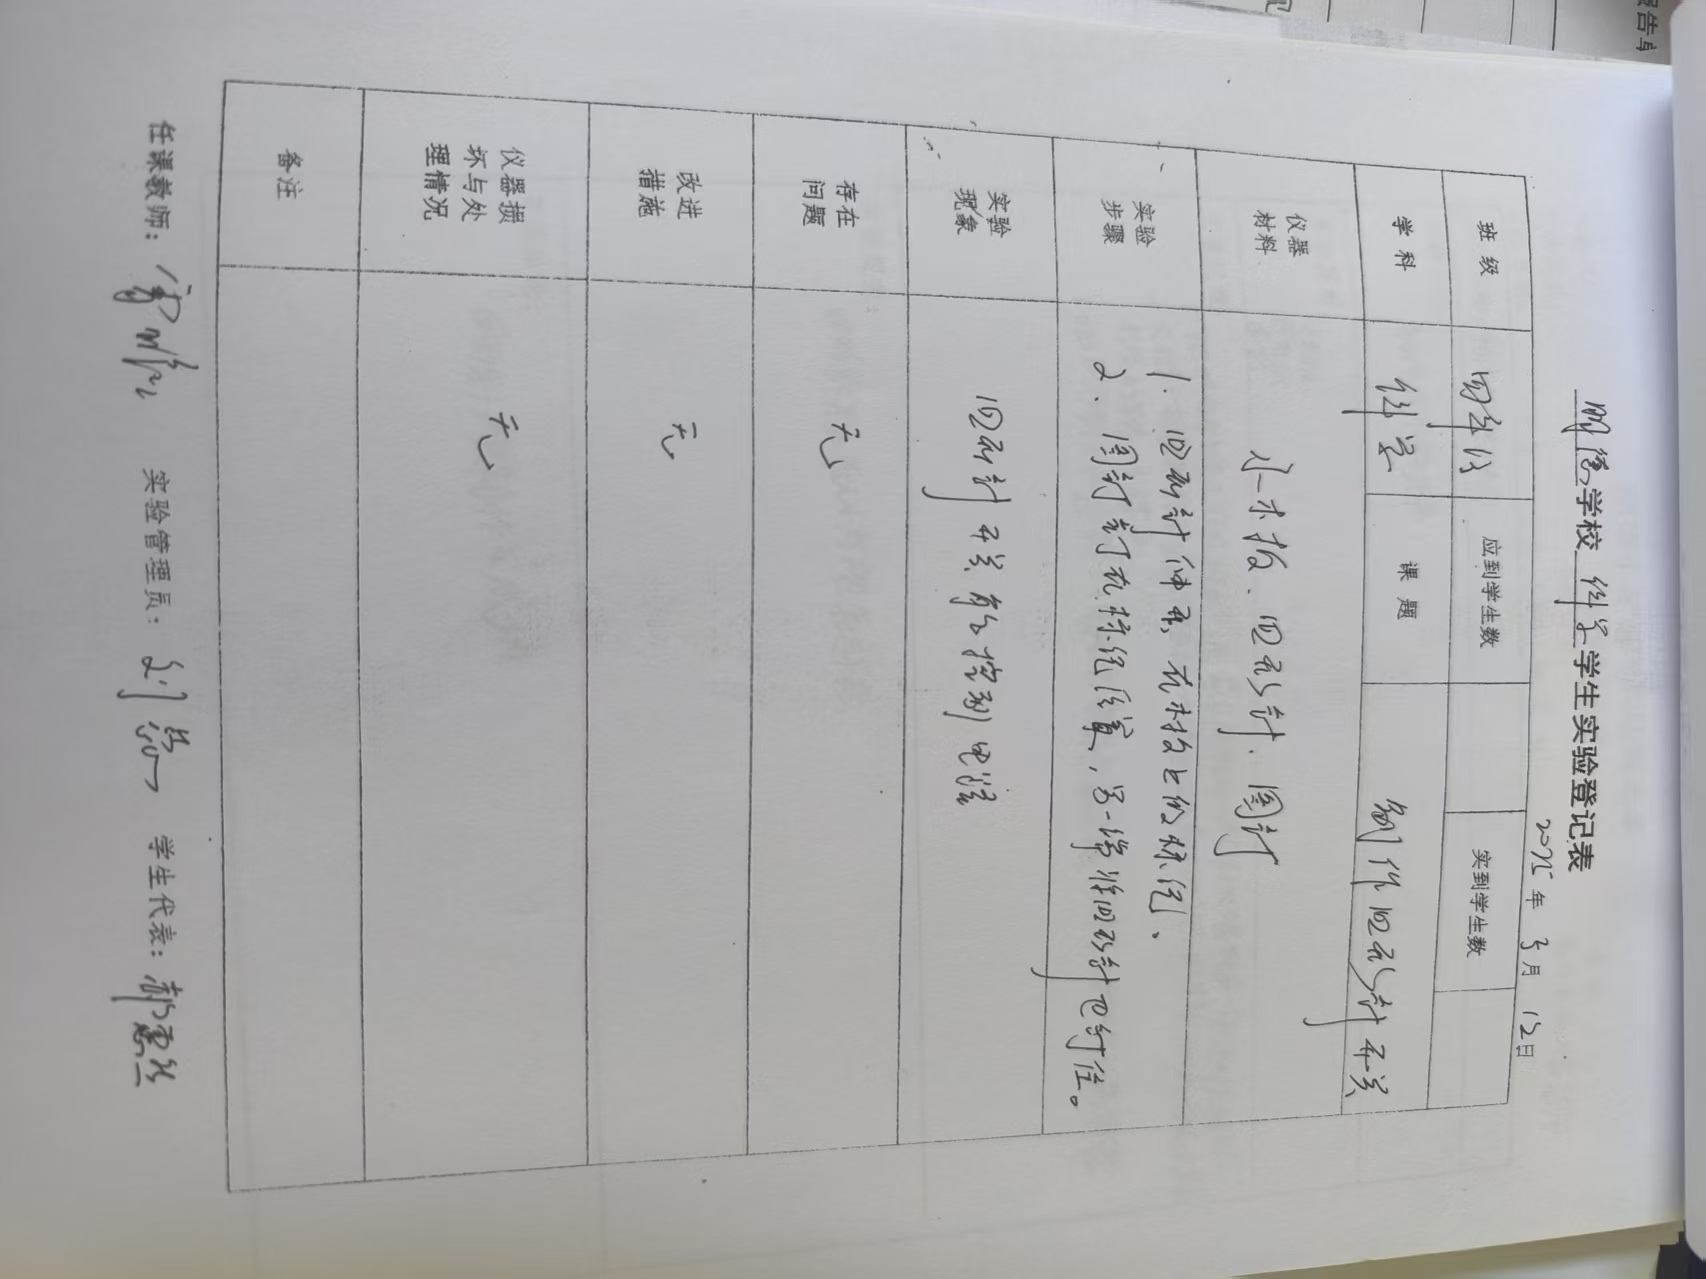 明德学校 科学 学生实验登记表
2025年 3月 12日
班级 四年级 应到学生数 实到学生数
学科 科学 课题 制作回形针开关
仪器材料 小木板、回形针、图钉
实验步骤 1. 回形针伸直,在木板上做标记、
2. 图钉钉在标记位置,另一端将回形针也钉住。
实验现象 回形针开关能控制电路
存在问题 无
改进措施 无
仪器损坏与处理情况 无
备注
任课教师: 实验管理员: 刘 学生代表: 郝
报告单